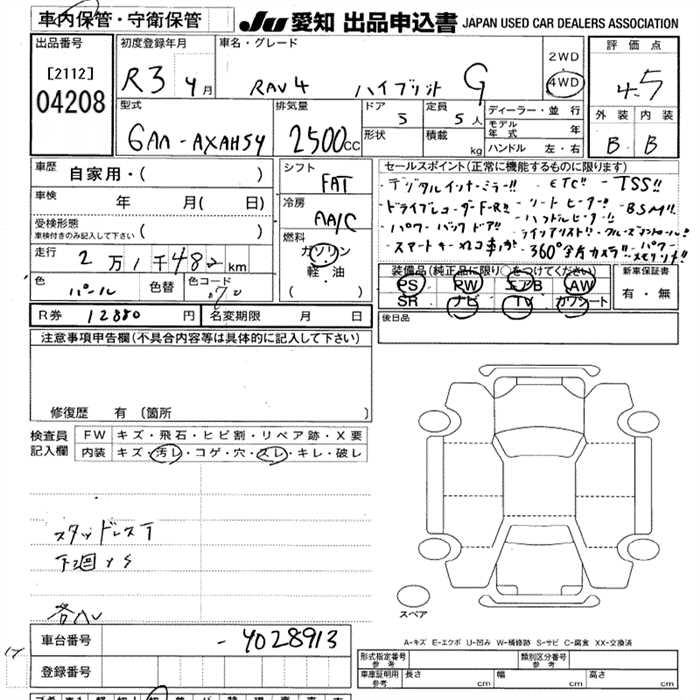 車内保管・守衛保管
JU 愛知 出品申込書 JAPAN USED CAR DEALERS ASSOCIATION
出品番号 初度登録年月 車名・グレード 評価点
[2112] 04208 R3 4月 RAV4 ハイブリット G 2WD 4WD 4.5
型式 排気量 ドア 定員 ディーラー・並行 外装 内装
6AA - AXAH54 2500cc 5 5人 モデル年式 年 B B
形状 積載 kg ハンドル 左・右
車歴 自家用・( )
車検 年 月( 日)
受検形態
車検付きのみ記入して下さい ( )
走行 2万1千482km
色 パール 色替 色コード 070
R券 12880円 名変期限 月 日
シフト FAT
冷房 AA/C
燃料 ガソリン
軽・油
( )
セールスポイント(正常に機能するものに限ります)
・デジタルインナーミラー!! ・ETC!! ・TSS!!
・ドライブレコーダーF・R!! ・シートヒーター!! ・BSM!!
・パワーバックドア!! ・ハンドルヒーター!!
・スマートキー ・360°全方カメラ!! ・パワー
装備品(純正品に限り○をつけてください) 新車保証書
PS PW エアB AW 有・無
SR ナビ TV カワシート
後日品
注意事項申告欄(不具合内容等は具体的に記入して下さい)
修復歴 有(箇所 )
検査員記入欄 FW キズ・飛石・ヒビ割・リペア跡・X要
内装 キズ・汚レ・コゲ・穴・スレ・キレ・破レ
スタッドレスT
下廻 XS
スペア
車台番号 - 4028913
登録番号
A-キズ E-エクボ U-凹み W-補修跡 S-サビ C-腐食 XX-交換済
形式指定番号 参考 類別区分番号 参考
車庫証明用 参考 長さ cm 幅 cm 高さ cm